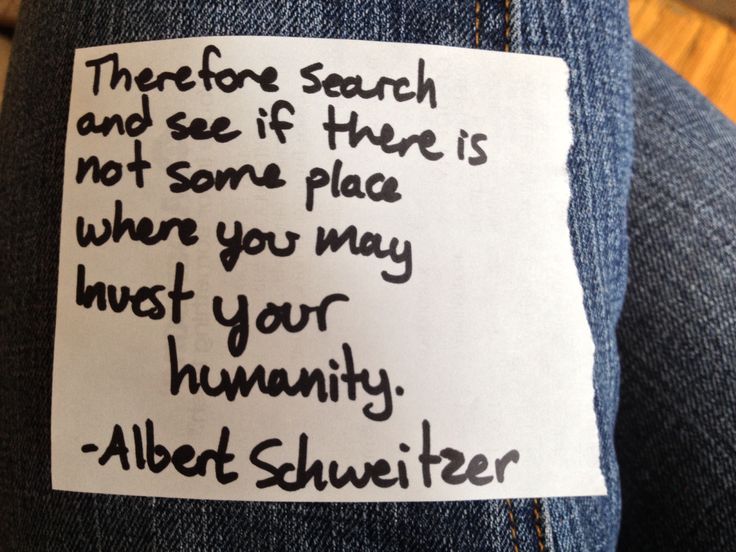 Therefore search
and see if there is
not some place
where you may
invest your
humanity.
-Albert Schweitzer